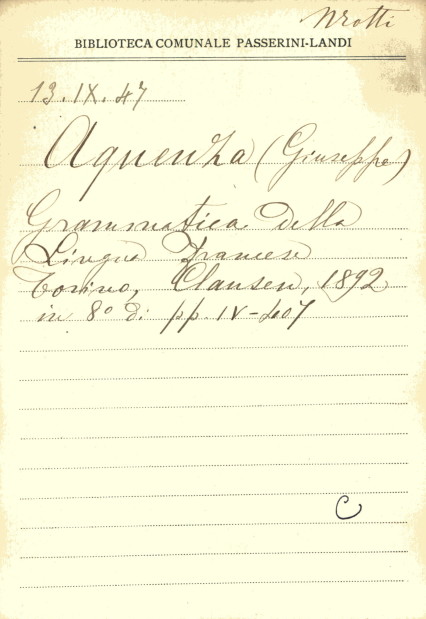 Nrotti
BIBLIOTECA COMUNALE PASSERINI-LANDI
13.IX.47
Aquenza (Giuseppe)
Grammatica della
Lingua Francese
Torino, Clausen, 1892
in 8° di pp. IV-407
C